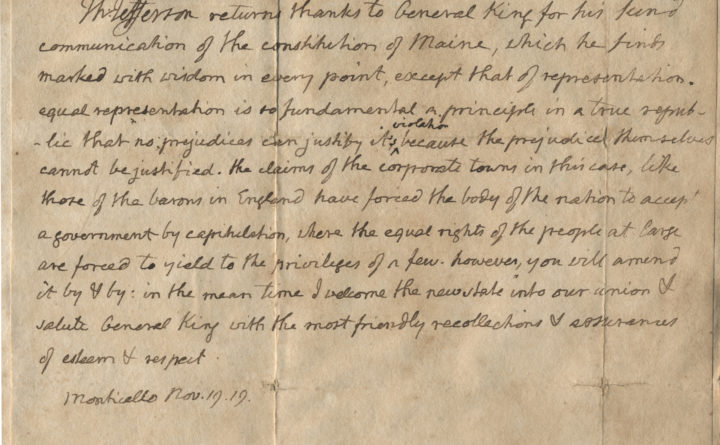 Th: Jefferson returns thanks to General King for his kind
communication of the constitution of Maine, which he finds
marked with wisdom in every point, except that of representation.
equal representation is so fundamental a principle in a true repub-
-lic that no prejudices can justify it's violation because the prejudices themselves
cannot be justified. the claims of the corporate towns in this case, like
those of the barons in England have forced the body of the nation to accept
a government by capitulation, where the equal rights of the people at large
are forced to yield to the privileges of a few. however, you will amend
it by & by: in the mean time I welcome the new state into our union &
salute General King with the most friendly recollections & assurances
of esteem & respect.
Monticello Nov. 19. 19.